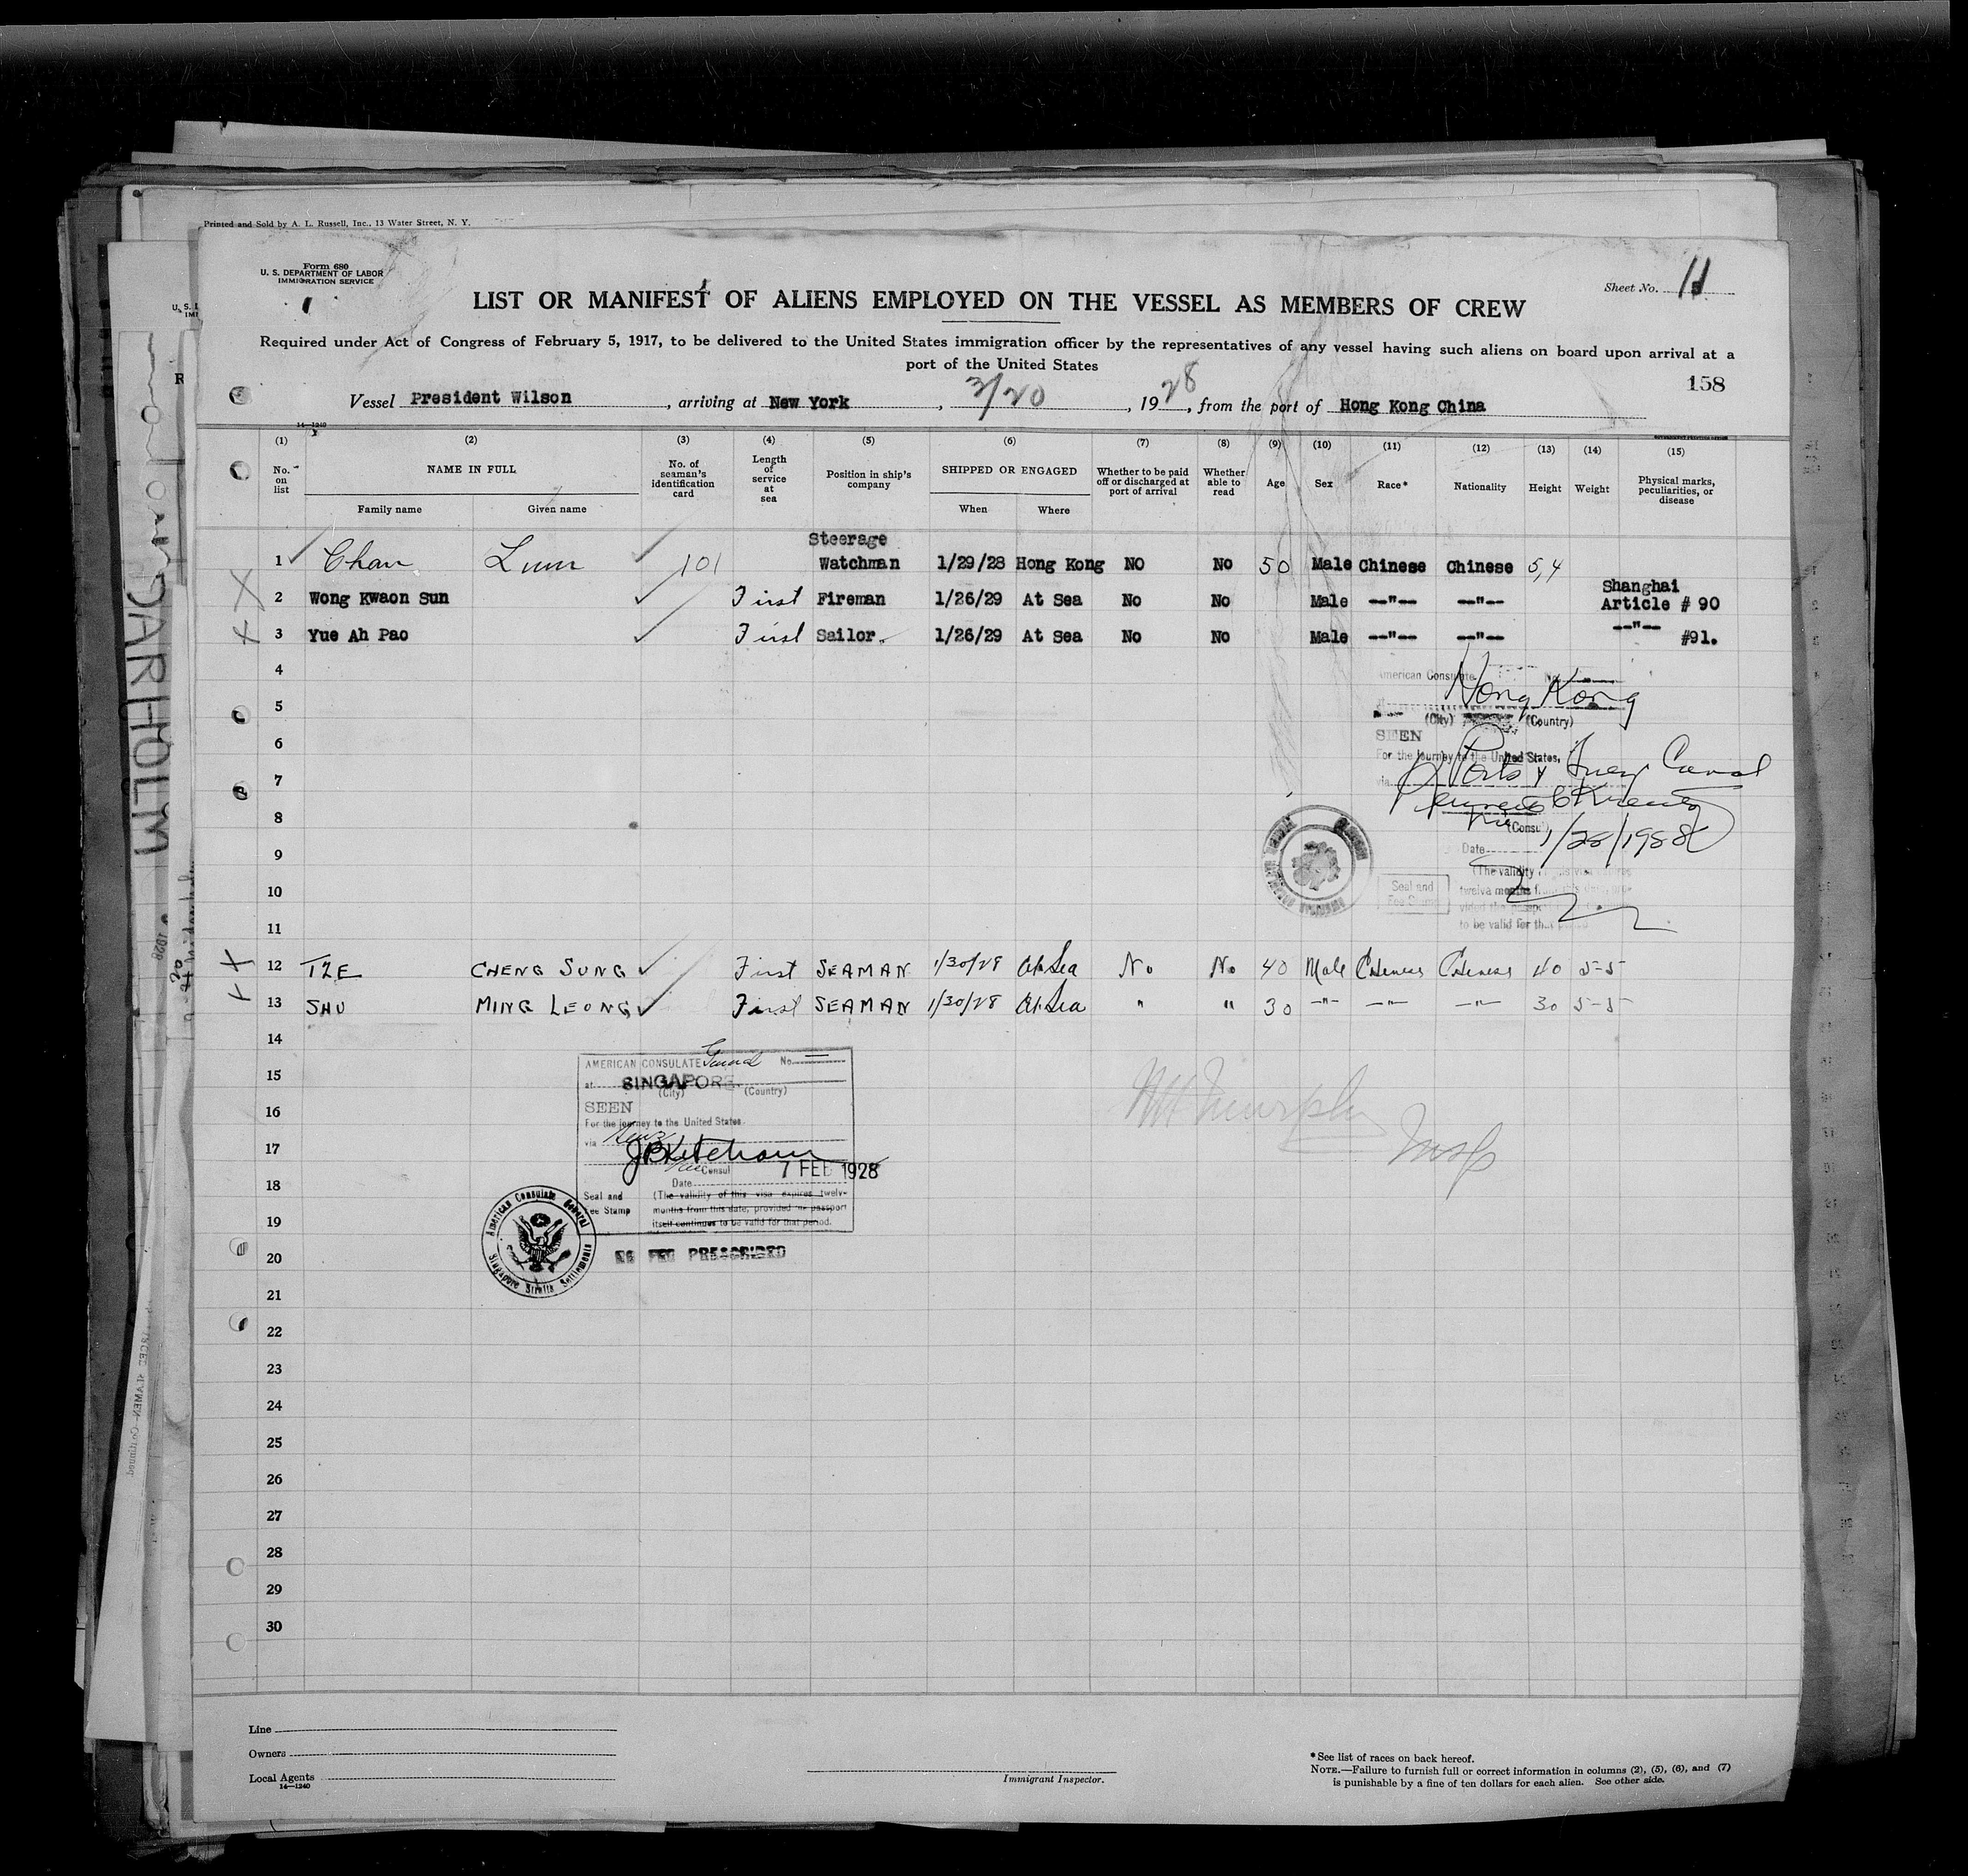 Printed and Sold by A. L. Russell, Inc., 13 Water Street, N. Y.
Form 680
U. S. DEPARTMENT OF LABOR
IMMIGRATION SERVICE
Sheet No. 11
LIST OR MANIFEST OF ALIENS EMPLOYED ON THE VESSEL AS MEMBERS OF CREW
Required under Act of Congress of February 5, 1917, to be delivered to the United States immigration officer by the representatives of any vessel having such aliens on board upon arrival at a
port of the United States
158
Vessel President Wilson, arriving at New York, 3/20, 1928, from the port of Hong Kong China
14—1240
(1) (2) (3) (4) (5) (6) (7) (8) (9) (10) (11) (12) (13) (14) (15)
No. on list
NAME IN FULL
Family name
Given name
No. of seaman's identification card
Length of service at sea
Position in ship's company
SHIPPED OR ENGAGED
When
Where
Whether to be paid off or discharged at port of arrival
Whether able to read
Age
Sex
Race*
Nationality
Height
Weight
Physical marks, peculiarities, or disease
Steerage
1 Chan Lum 101 Watchman 1/29/28 Hong Kong NO No 50 Male Chinese Chinese 5,4
Shanghai
2 Wong Kwaon Sun First Fireman 1/26/29 At Sea No No Male —"— —"— Article # 90
3 Yue Ah Pao First Sailor. 1/26/29 At Sea No No Male —"— —"— —"— #91.
4
5
6
7
8
9
10
11
American Consulate No.
Hong Kong
(City) (Country)
SEEN
For the journey to the United States,
via Ports & Suez Canal
(Consul)
Date 1/28/1928
(The validity of this visa expires
twelve months from this date, pro-
vided the passport
to be valid for that period
Seal and
Fee Stamp
12 TZE CHENG SUNG First SEAMAN 1/30/28 At Sea No No 40 Male Chinese Chinese 40 5-5
13 SHU MING LEONG First SEAMAN 1/30/28 At Sea " " 30 —"— —"— —"— 30 5-5
14
15
16
17
18
19
20
21
22
23
24
25
26
27
28
29
30
AMERICAN CONSULATE General No. —
at SINGAPORE.
(City) (Country)
SEEN
For the journey to the United States
via Suez
Vice Consul
Date 7 FEB 1928
Seal and
Fee Stamp
(The validity of this visa expires twelve
months from this date, provided the passport
itself continues to be valid for that period.
American Consulate General
Singapore Straits Settlements
NO FEE PRESCRIBED
Murphy
Insp
Line
Owners
Local Agents
14—1240
Immigrant Inspector.
*See list of races on back hereof.
NOTE.—Failure to furnish full or correct information in columns (2), (5), (6), and (7)
is punishable by a fine of ten dollars for each alien. See other side.
DARHOLM